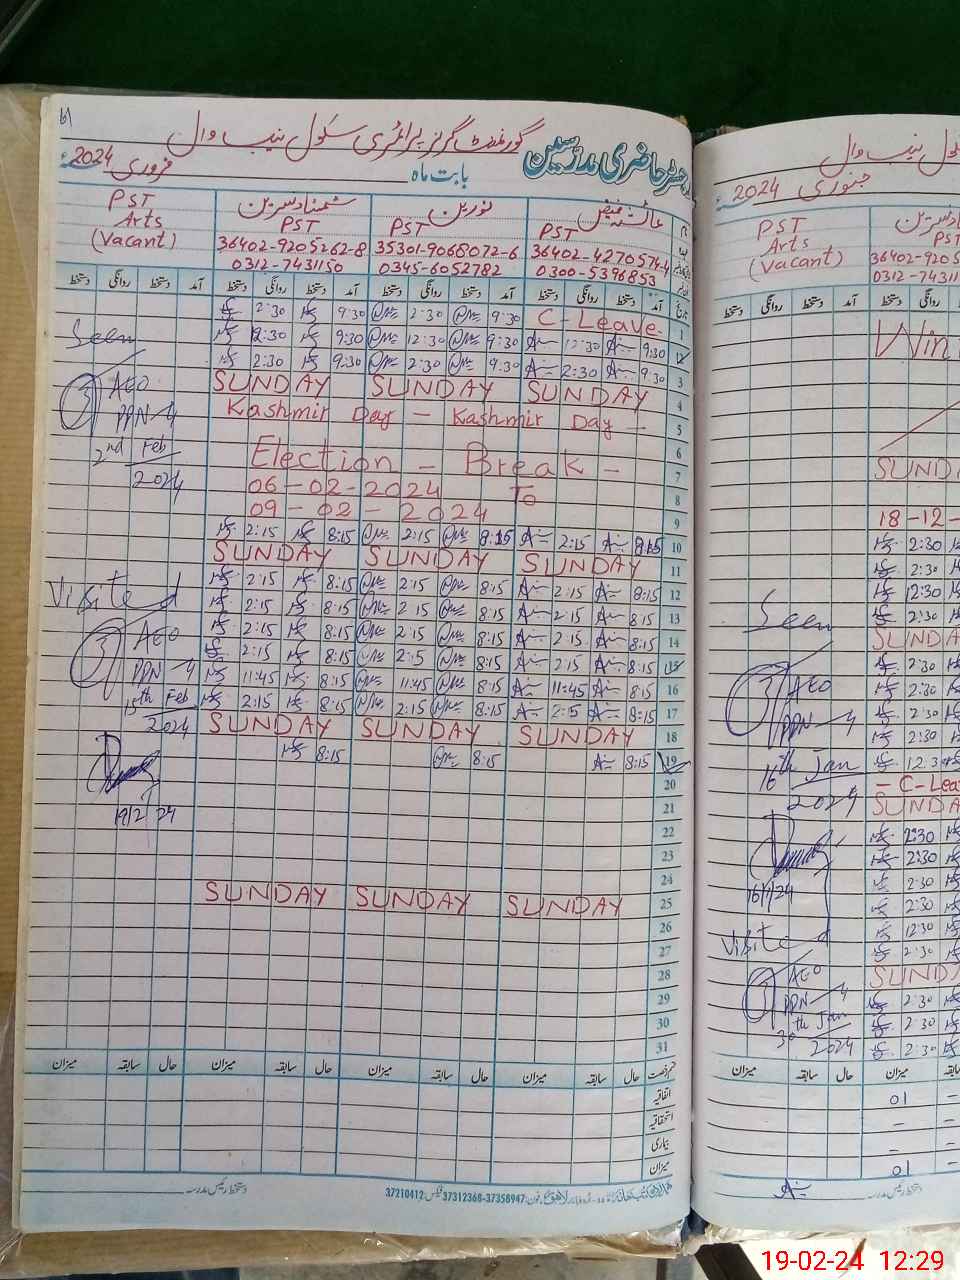 رجسٹر حاضری مدرسین
گورنمنٹ گرلز پرائمری سکول نیب وال
بابت ماہ فروری 2024ء
PST Arts (Vacant)
PST نورین PST
36402-9205262-8 35301-9068072-6 36402-4270574-4
0312-7431150 0345-6052782 0300-5396853
دستخط روانگی دستخط آمد دستخط روانگی دستخط آمد دستخط روانگی دستخط آمد دستخط روانگی دستخط آمد تاریخ
2:30 9:30 2:30 9:30 C-Leave 1
Seen 12:30 9:30 12:30 9:30 12:30 9:30 2
2:30 9:30 2:30 9:30 2:30 9:30 3
AEO SUNDAY SUNDAY SUNDAY 4
PPN-4 Kashmir Day - Kashmir Day - 5
2nd Feb 6
2024 Election - Break - 7
06-02-2024 To 8
09-02-2024 9
2:15 8:15 2:15 8:15 2:15 8:15 10
SUNDAY SUNDAY SUNDAY 11
Visited 2:15 8:15 2:15 8:15 2:15 8:15 12
2:15 8:15 2:15 8:15 2:15 8:15 13
AEO 2:15 8:15 2:15 8:15 2:15 8:15 14
PPN-4 2:15 8:15 2:15 8:15 2:15 8:15 15
11:45 8:15 11:45 8:15 11:45 8:15 16
15th Feb 2:15 8:15 2:15 8:15 2:15 8:15 17
2024 SUNDAY SUNDAY SUNDAY 18
8:15 8:15 8:15 19
20
19/2/24 21
22
23
24
SUNDAY SUNDAY SUNDAY 25
26
27
28
29
30
31
میزان سابقہ حال میزان سابقہ حال میزان سابقہ حال میزان سابقہ حال قسم رخصت
اتفاقیہ
استحقاقیہ
بیماری
میزان
دستخط رئیس مدرسہ
لاہور فون: 37358947-37312368 فیکس: 37210412
نیب وال
جنوری 2024ء
PST Arts (Vacant) PST
36402-920
0312-7431
دستخط روانگی دستخط آمد دستخط روانگی
Win
SUNDA
18-12-
2:30
2:30
12:30
Seen 2:30
SUNDA
2:30
AEO 2:30
PPN-4 2:30
2:30
16th Jan 12:3
- C-Lea
2024 SUNDA
2:30
2:30
2:30
16/1/24 2:30
12:30
Visited 2:30
AEO SUNDA
PPN-4 2:30
30th Jan 2:30
2024 2:30
میزان سابقہ حال میزان
01 -
- -
- -
01 -
دستخط رئیس مدرسہ
19-02-24 12:29